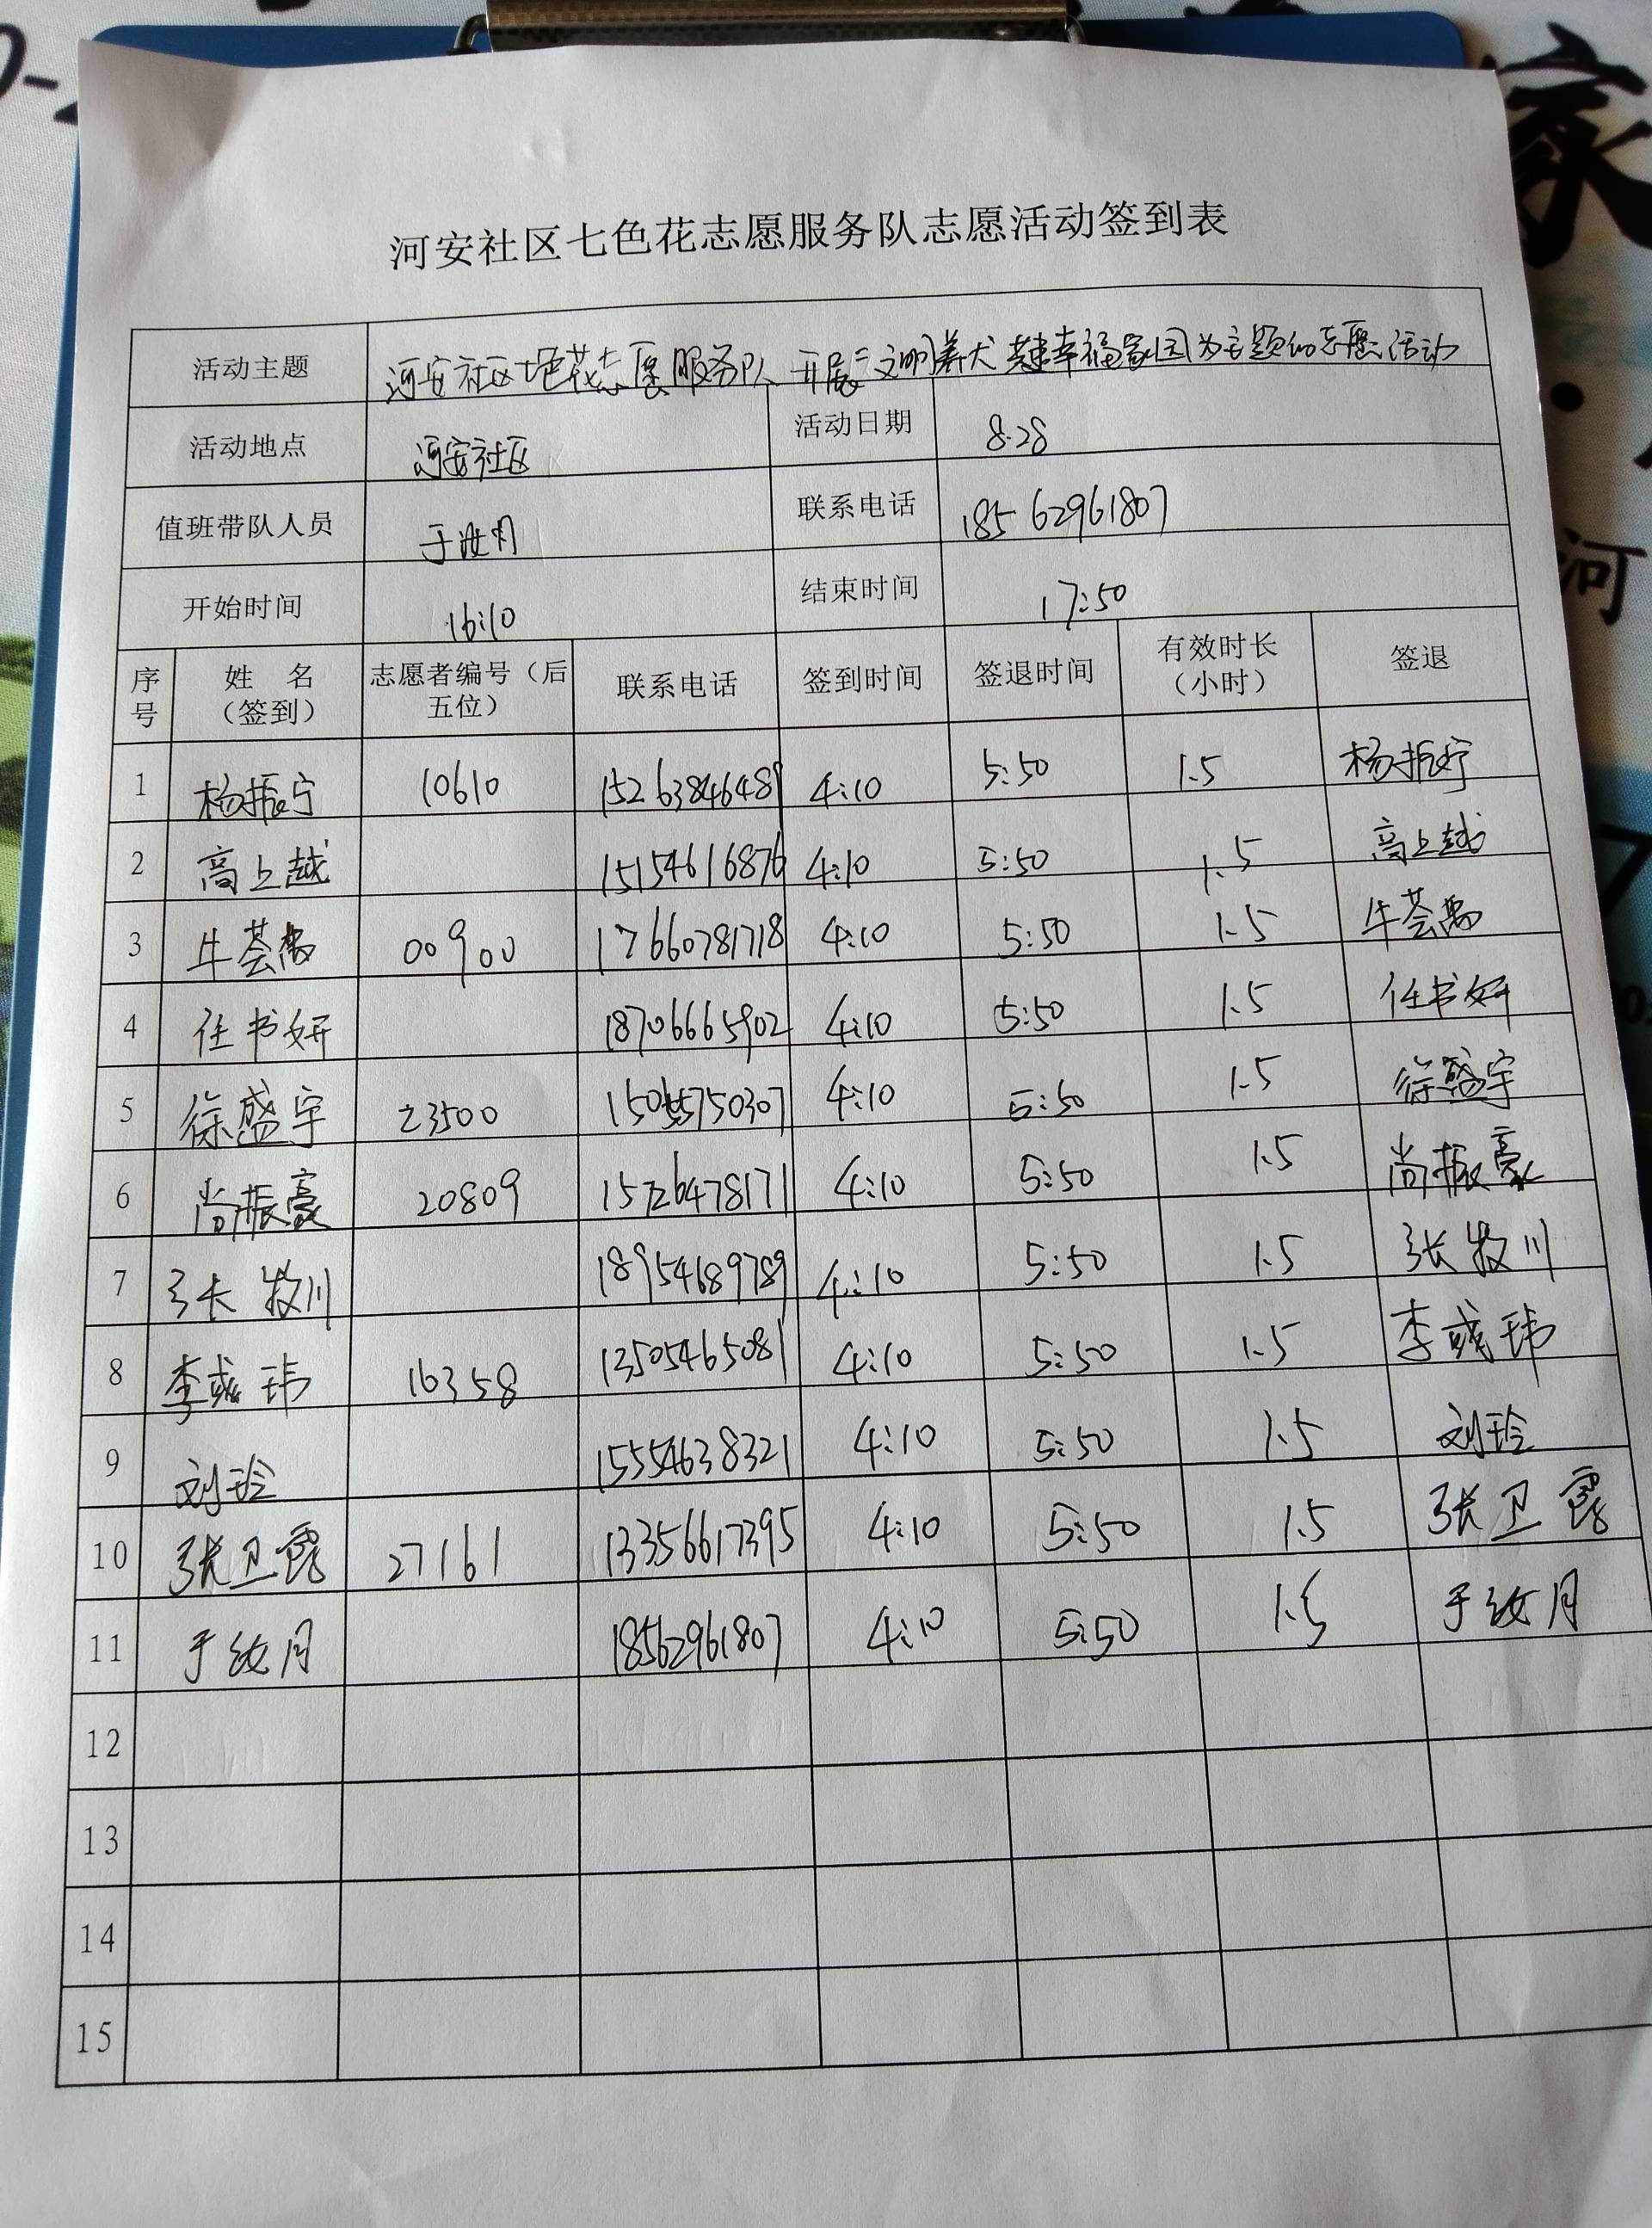 家
河
河安社区七色花志愿服务队志愿活动签到表
活动主题 河安社区七色花志愿服务队开展"文明养犬 共建幸福家园为主题的志愿活动
活动地点 河安社区 活动日期 8.28
值班带队人员 于汝月 联系电话 18562961807
开始时间 16:10 结束时间 17:50
序号 姓 名（签到） 志愿者编号（后五位） 联系电话 签到时间 签退时间 有效时长（小时） 签退
1 杨振宁 10610 15263846489 4:10 5:50 1.5 杨振宁
2 高上越 15154616876 4:10 5:50 1.5 高上越
3 牛荟禹 00900 17660781718 4:10 5:50 1.5 牛荟禹
4 任书妍 18706665902 4:10 5:50 1.5 任书妍
5 徐盛宇 23500 4:10 5:50 1.5 徐盛宇
6 尚振豪 20809 15726478171 4:10 5:50 1.5 尚振豪
7 张牧川 18954689789 4:10 5:50 1.5 张牧川
8 李彧玮 16358 13505465081 4:10 5:50 1.5 李彧玮
9 刘玲 15554638321 4:10 5:50 1.5 刘玲
10 张卫霞 27161 13356617395 4:10 5:50 1.5 张卫霞
11 于汝月 18562961807 4:10 5:50 1.5 于汝月
12
13
14
15